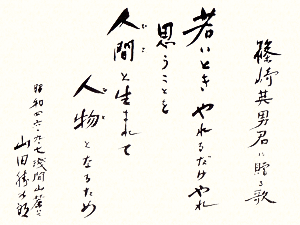 篠崎其男君に贈る歌
若いときやれるだけやれ
思うことを
人間と生まれて
人物となるため
昭和四六・九・七浅間山麓にて
山田勝太郎